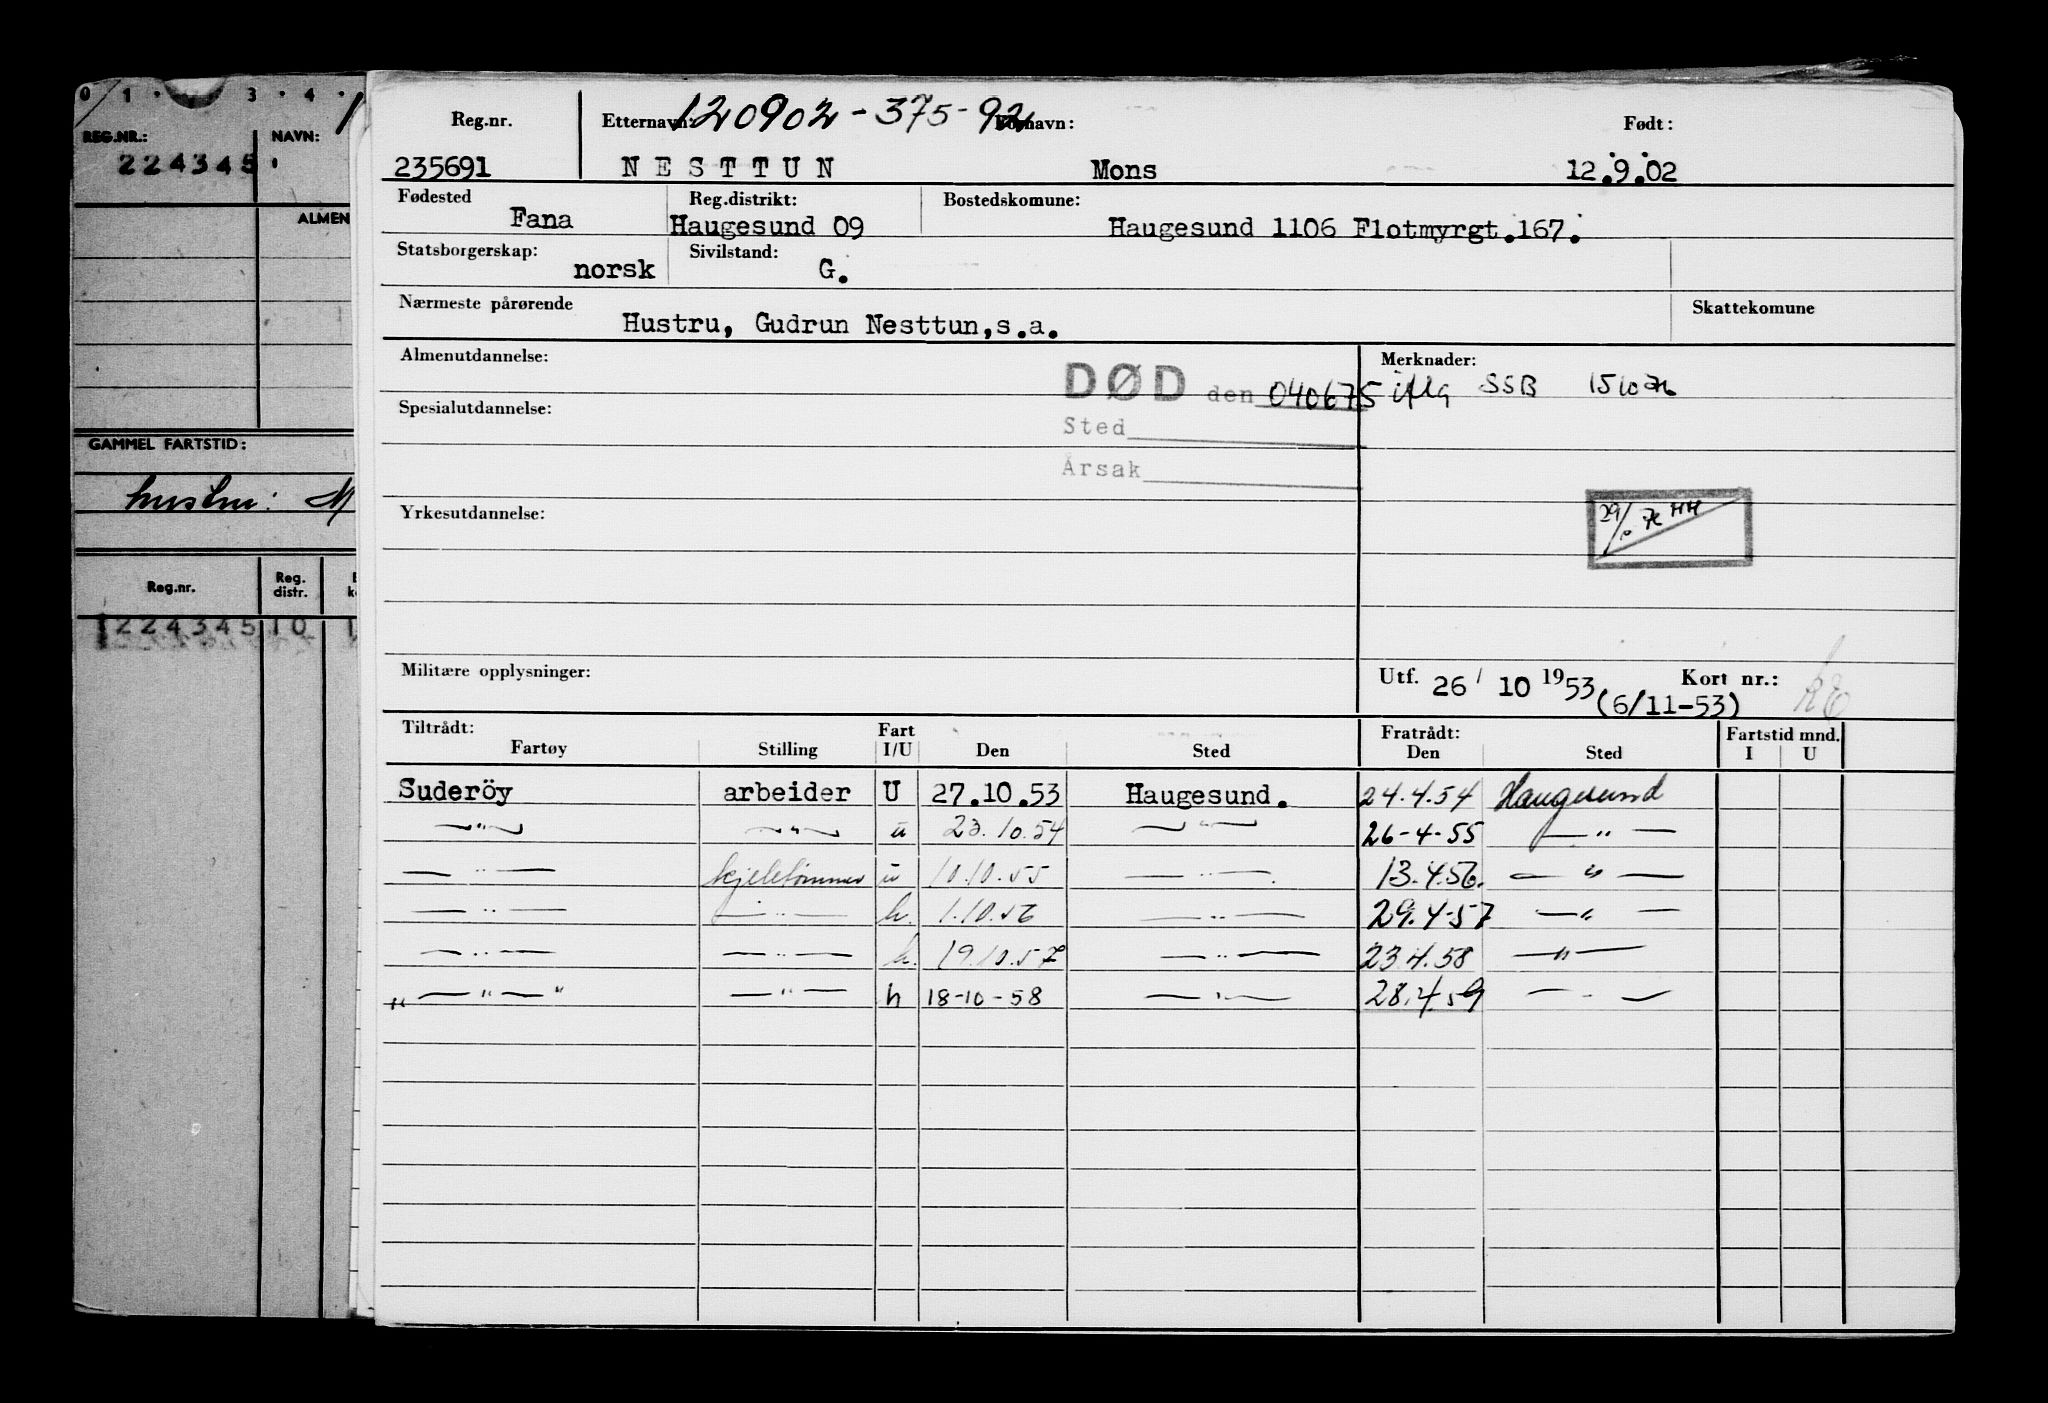 0 1 · 3 · 4 ·
REG.NR.: NAVN:
224345
ALMEN
GAMMEL FARTSTID:
hustru: M
Reg.nr. Reg. distr.
224345 10 1
120902-375-92
Reg.nr. Etternavn: Fornavn: Født:
235691 NESTTUN Mons 12.9.02
Fødested Reg.distrikt: Bostedskomune:
Fana Haugesund 09 Haugesund 1106 Flotmyrgt.167.
Statsborgerskap: Sivilstand:
norsk G.
Nærmeste pårørende Skattekomune
Hustru, Gudrun Nesttun,s.a.
Almenutdannelse: Merknader:
DØD den 040675 iflg SSB
Spesialutdannelse:
Sted
Årsak
Yrkesutdannelse:
29/10 HH
Militære opplysninger: Utf. 26/ 10 1953 Kort nr.:
(6/11-53)
Tiltrådt: Fart Fratrådt: Fartstid mnd.
Fartøy Stilling I/U Den Sted Den Sted I U
Suderöy arbeider U 27.10.53 Haugesund. 24.4.54 Haugesund
—"— —"— u 23.10.54 —"— 26-4-55 —"—
—"— kjeletømmer u 10.10.55 —"— 13.4.56. —"—
—"— —"— h. 1.10.56 —"— 29.4-57 —"—
—"— —"— h. 19.10.57 —"— 23.4.58 —"—
" —"— " —"— h 18-10-58 —"— 28.4.59 —"—